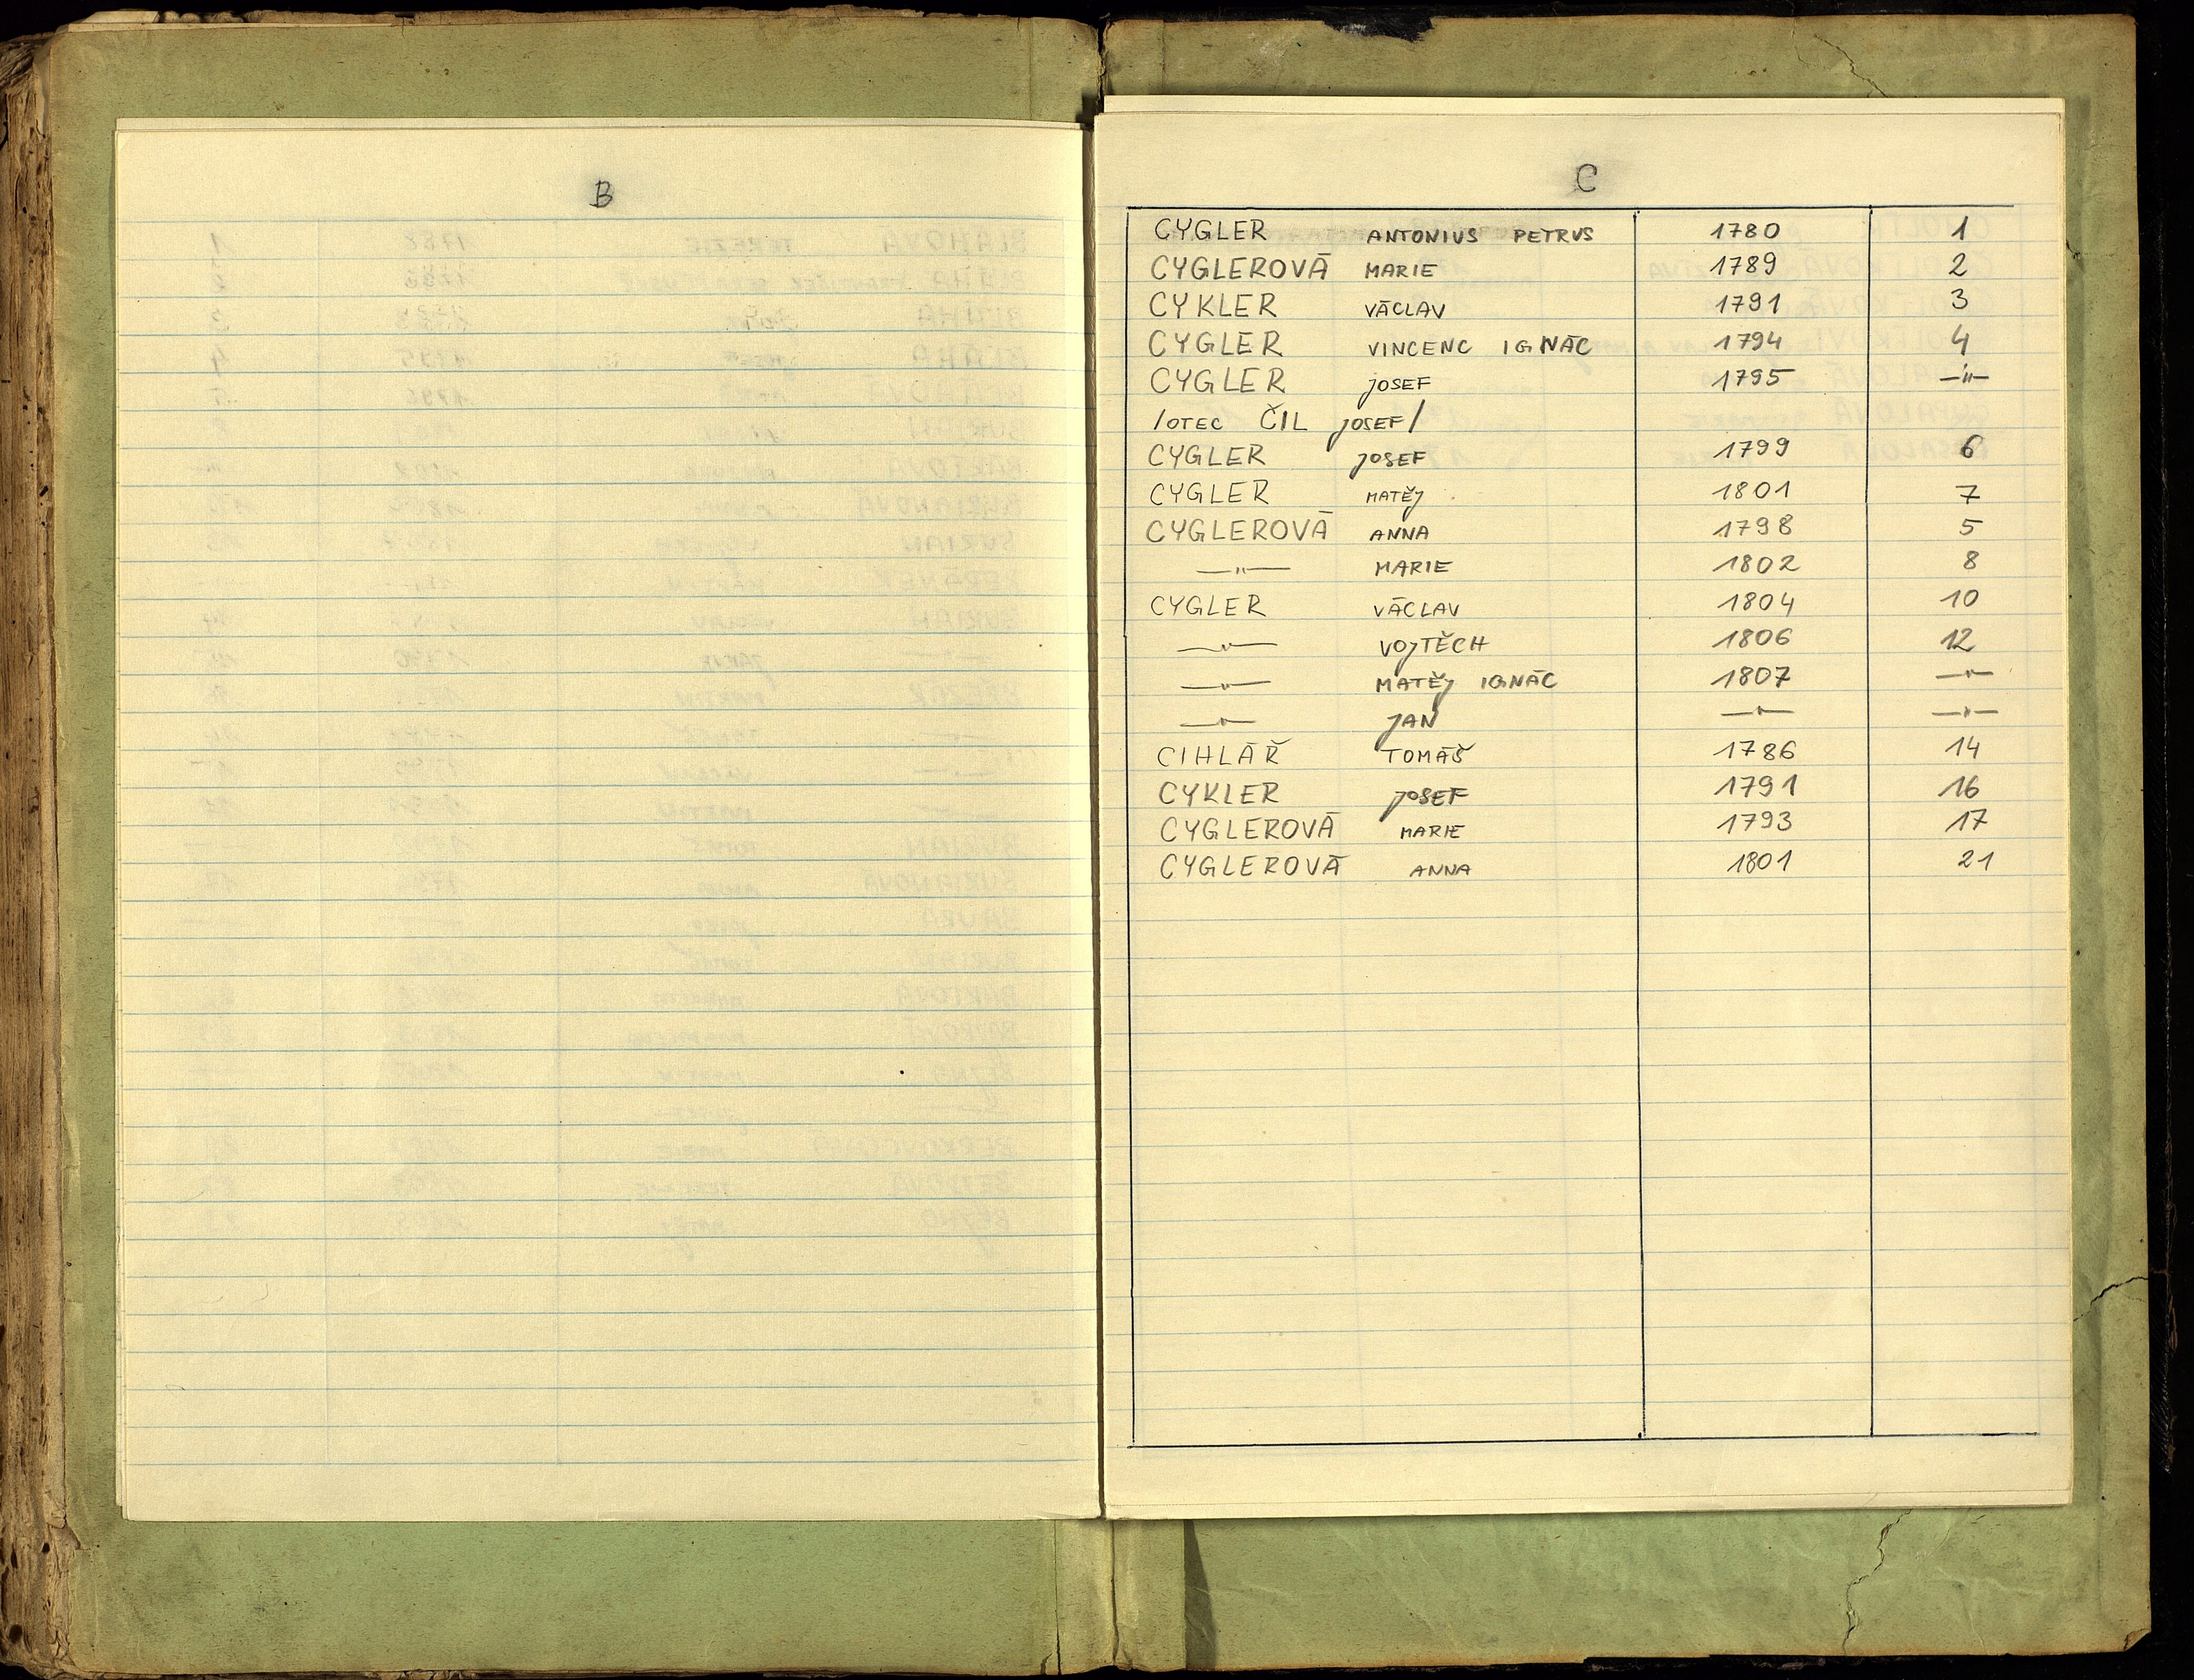 B
C
CYGLER ANTONIUS PETRUS 1780 1
CYGLEROVÁ MARIE 1789 2
CYKLER VÁCLAV 1791 3
CYGLER VINCENC IGNÁC 1794 4
CYGLER JOSEF 1795 —"—
/OTEC ČIL JOSEF/
CYGLER JOSEF 1799 6
CYGLER MATĚJ 1801 7
CYGLEROVÁ ANNA 1798 5
—"— MARIE 1802 8
CYGLER VÁCLAV 1804 10
—"— VOJTĚCH 1806 12
—"— MATĚJ IGNÁC 1807 —"—
—"— JAN —"— —"—
CIHLÁŘ TOMÁŠ 1786 14
CYKLER JOSEF 1791 16
CYGLEROVÁ MARIE 1793 17
CYGLEROVÁ ANNA 1801 21